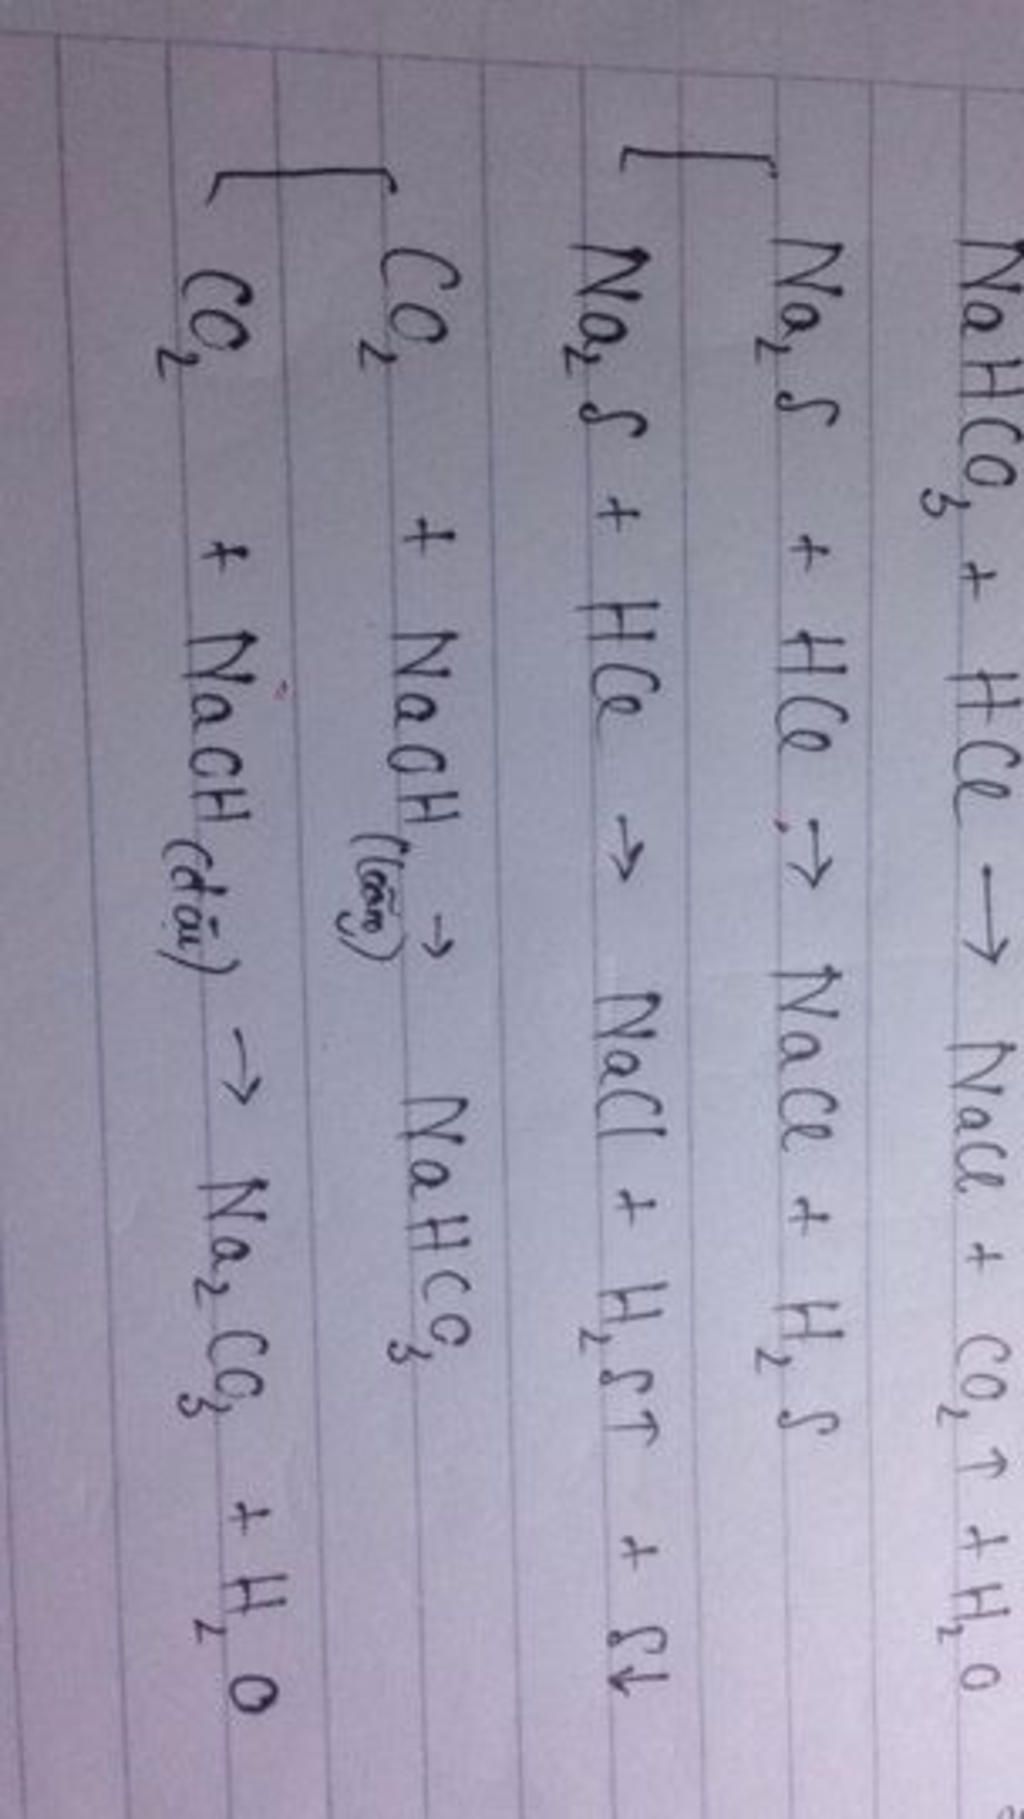 NaHCO₃ + HCl → NaCl + CO₂↑ + H₂O
Na₂S + HCl → NaCl + H₂S
Na₂S + HCl → NaCl + H₂S↑ + S↓
CO₂ + NaOH (loãng) → NaHCO₃
CO₂ + NaOH (đặc) → Na₂CO₃ + H₂O